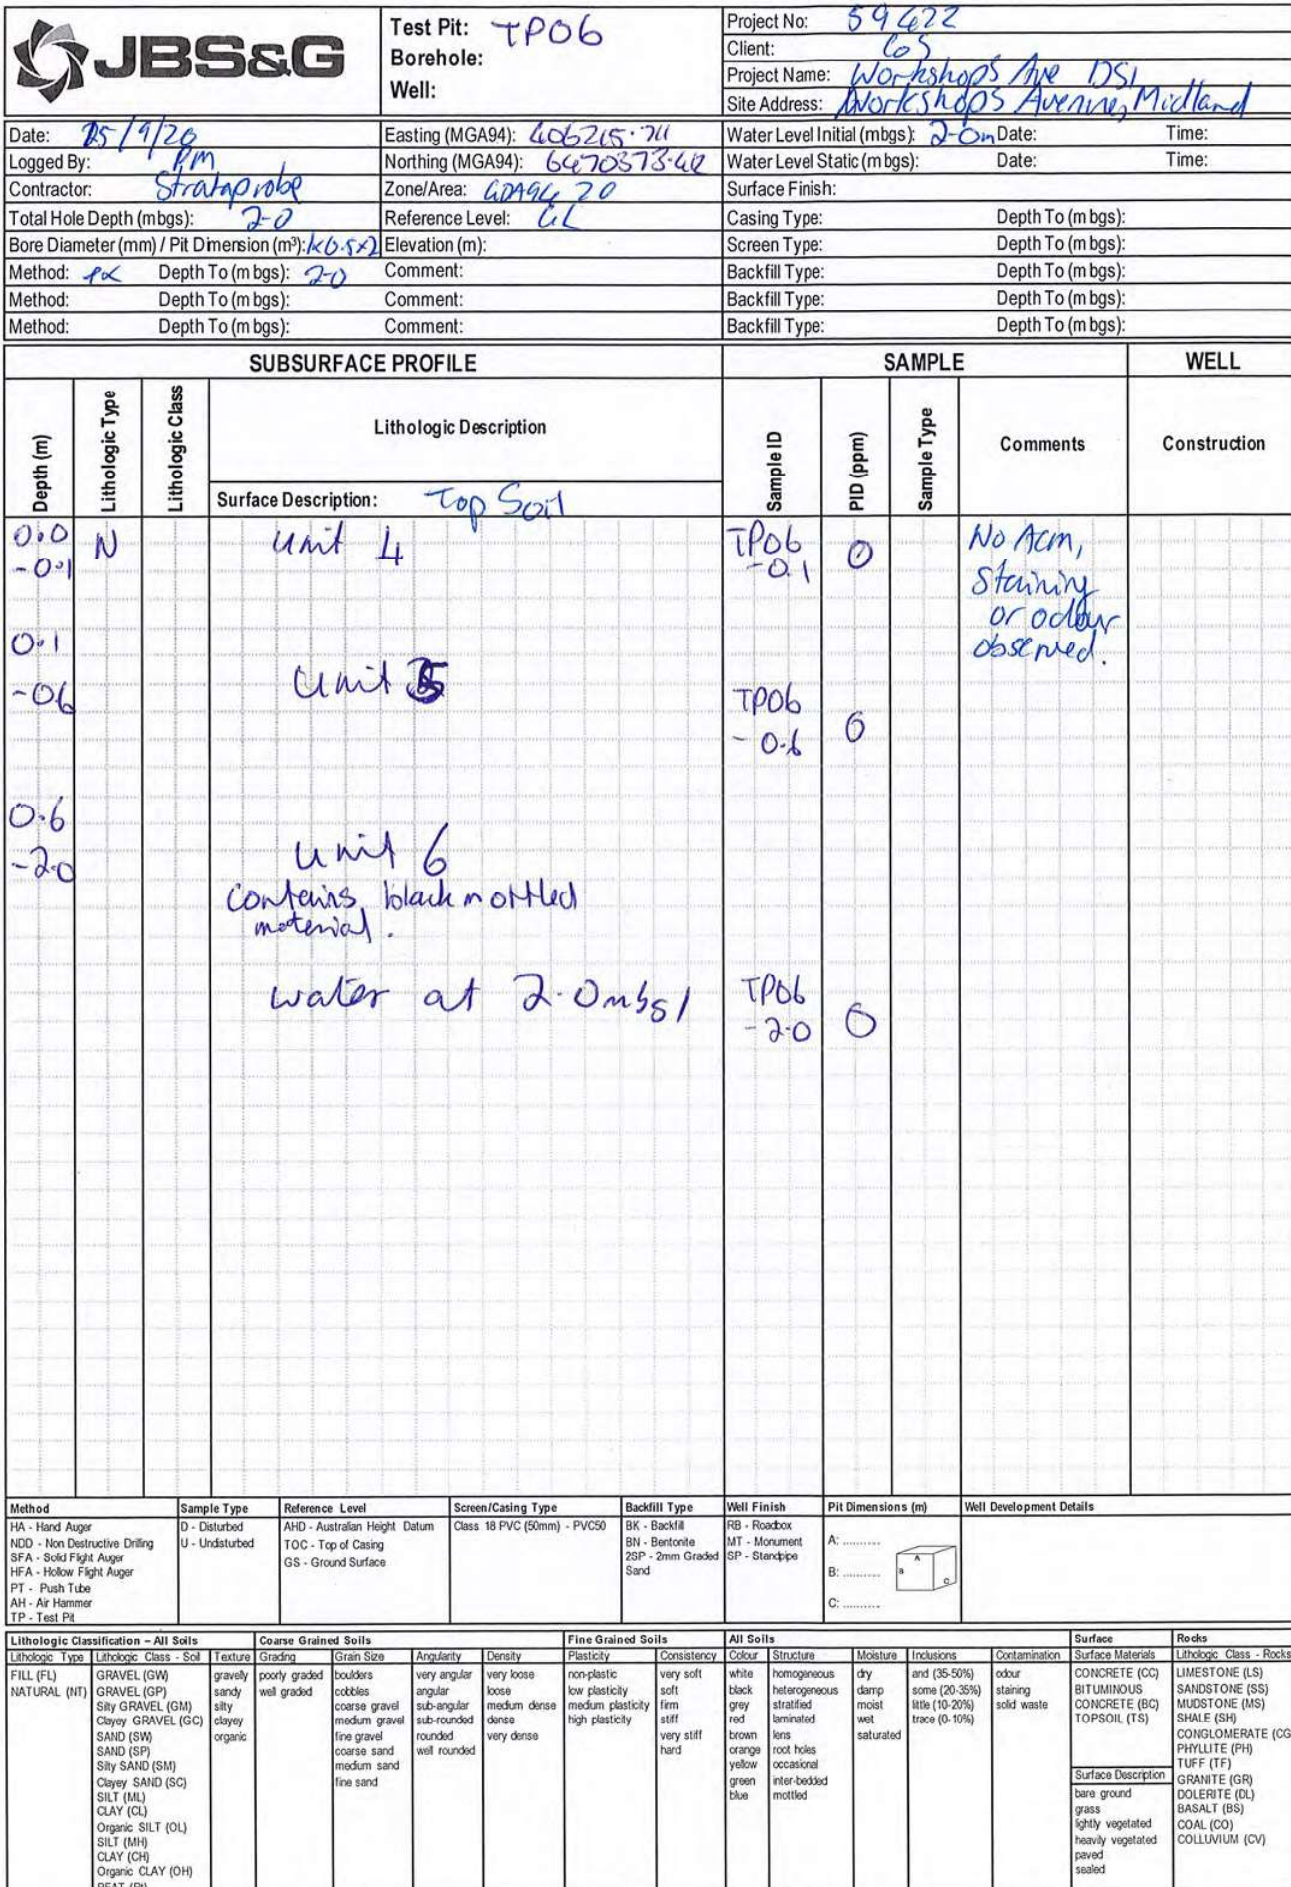 JBS&G
Test Pit: TP06
Borehole:
Well:
Project No: 59422
Client: CoS
Project Name: Workshops Ave DSI
Site Address: Workshops Avenue, Midland
Date: 25/9/20
Logged By: PM
Contractor: Strataprobe
Total Hole Depth (mbgs): 2-0
Bore Diameter (mm) / Pit Dimension (m³):
Easting (MGA94): 406215.711
Northing (MGA94):
Zone/Area: GDA94
Reference Level: GL
Elevation (m):
Water Level Initial (mbgs): 2-0m Date: Time:
Water Level Static (mbgs): Date: Time:
Surface Finish:
Casing Type: Depth To (m bgs):
Screen Type: Depth To (m bgs):
Method: Depth To (m bgs): 2-0 Comment:
Backfill Type: Depth To (m bgs):
Method: Depth To (m bgs): Comment:
Backfill Type: Depth To (m bgs):
Method: Depth To (m bgs): Comment:
Backfill Type: Depth To (m bgs):
SUBSURFACE PROFILE
SAMPLE
WELL
Depth (m)
Lithologic Type
Lithologic Class
Lithologic Description
Surface Description: Top Soil
Sample ID
PID (ppm)
Sample Type
Comments
Construction
0.0
-0.1
N
Unit 4
TP06
-0.1
0
No ACM,
Staining
or odour
observed.
0.1
-0.6
Unit 5
TP06
-0.6
0
0.6
-2.0
Unit 6
contains black mottled
material.
water at 2.0mbgl
TP06
-2.0
0
Method
HA - Hand Auger
NDD - Non Destructive Drilling
SFA - Solid Flight Auger
HFA - Hollow Flight Auger
PT - Push Tube
AH - Air Hammer
TP - Test Pit
Sample Type
D - Disturbed
U - Undisturbed
Reference Level
AHD - Australian Height Datum
TOC - Top of Casing
GS - Ground Surface
Screen/Casing Type
Class 18 PVC (50mm) - PVC50
Backfill Type
BK - Backfill
BN - Bentonite
2SP - 2mm Graded
Sand
Well Finish
RB - Roadbox
MT - Monument
SP - Standpipe
Pit Dimensions (m)
A: ..........
B: ..........
C: ..........
A
B
C
Well Development Details
Lithologic Classification – All Soils
Lithologic Type
FILL (FL)
NATURAL (NT)
Lithologic Class - Soil
GRAVEL (GW)
GRAVEL (GP)
Silty GRAVEL (GM)
Clayey GRAVEL (GC)
SAND (SW)
SAND (SP)
Silty SAND (SM)
Clayey SAND (SC)
SILT (ML)
CLAY (CL)
Organic SILT (OL)
SILT (MH)
CLAY (CH)
Organic CLAY (OH)
Texture
gravelly
sandy
silty
clayey
organic
Coarse Grained Soils
Grading
poorly graded
well graded
Grain Size
boulders
cobbles
coarse gravel
medium gravel
fine gravel
coarse sand
medium sand
fine sand
Angularity
very angular
angular
sub-angular
sub-rounded
rounded
well rounded
Density
very loose
loose
medium dense
dense
very dense
Fine Grained Soils
Plasticity
non-plastic
low plasticity
medium plasticity
high plasticity
Consistency
very soft
soft
firm
stiff
very stiff
hard
All Soils
Colour
white
black
grey
red
brown
orange
yellow
green
blue
Structure
homogeneous
heterogeneous
stratified
laminated
lens
root holes
occasional
inter-bedded
mottled
Moisture
dry
damp
moist
wet
saturated
Inclusions
and (35-50%)
some (20-35%)
little (10-20%)
trace (0-10%)
Contamination
odour
staining
solid waste
Surface
Surface Materials
CONCRETE (CC)
BITUMINOUS
CONCRETE (BC)
TOPSOIL (TS)
Surface Description
bare ground
grass
lightly vegetated
heavily vegetated
paved
sealed
Rocks
Lithologic Class - Rocks
LIMESTONE (LS)
SANDSTONE (SS)
MUDSTONE (MS)
SHALE (SH)
CONGLOMERATE (CG
PHYLLITE (PH)
TUFF (TF)
GRANITE (GR)
DOLERITE (DL)
BASALT (BS)
COAL (CO)
COLLUVIUM (CV)